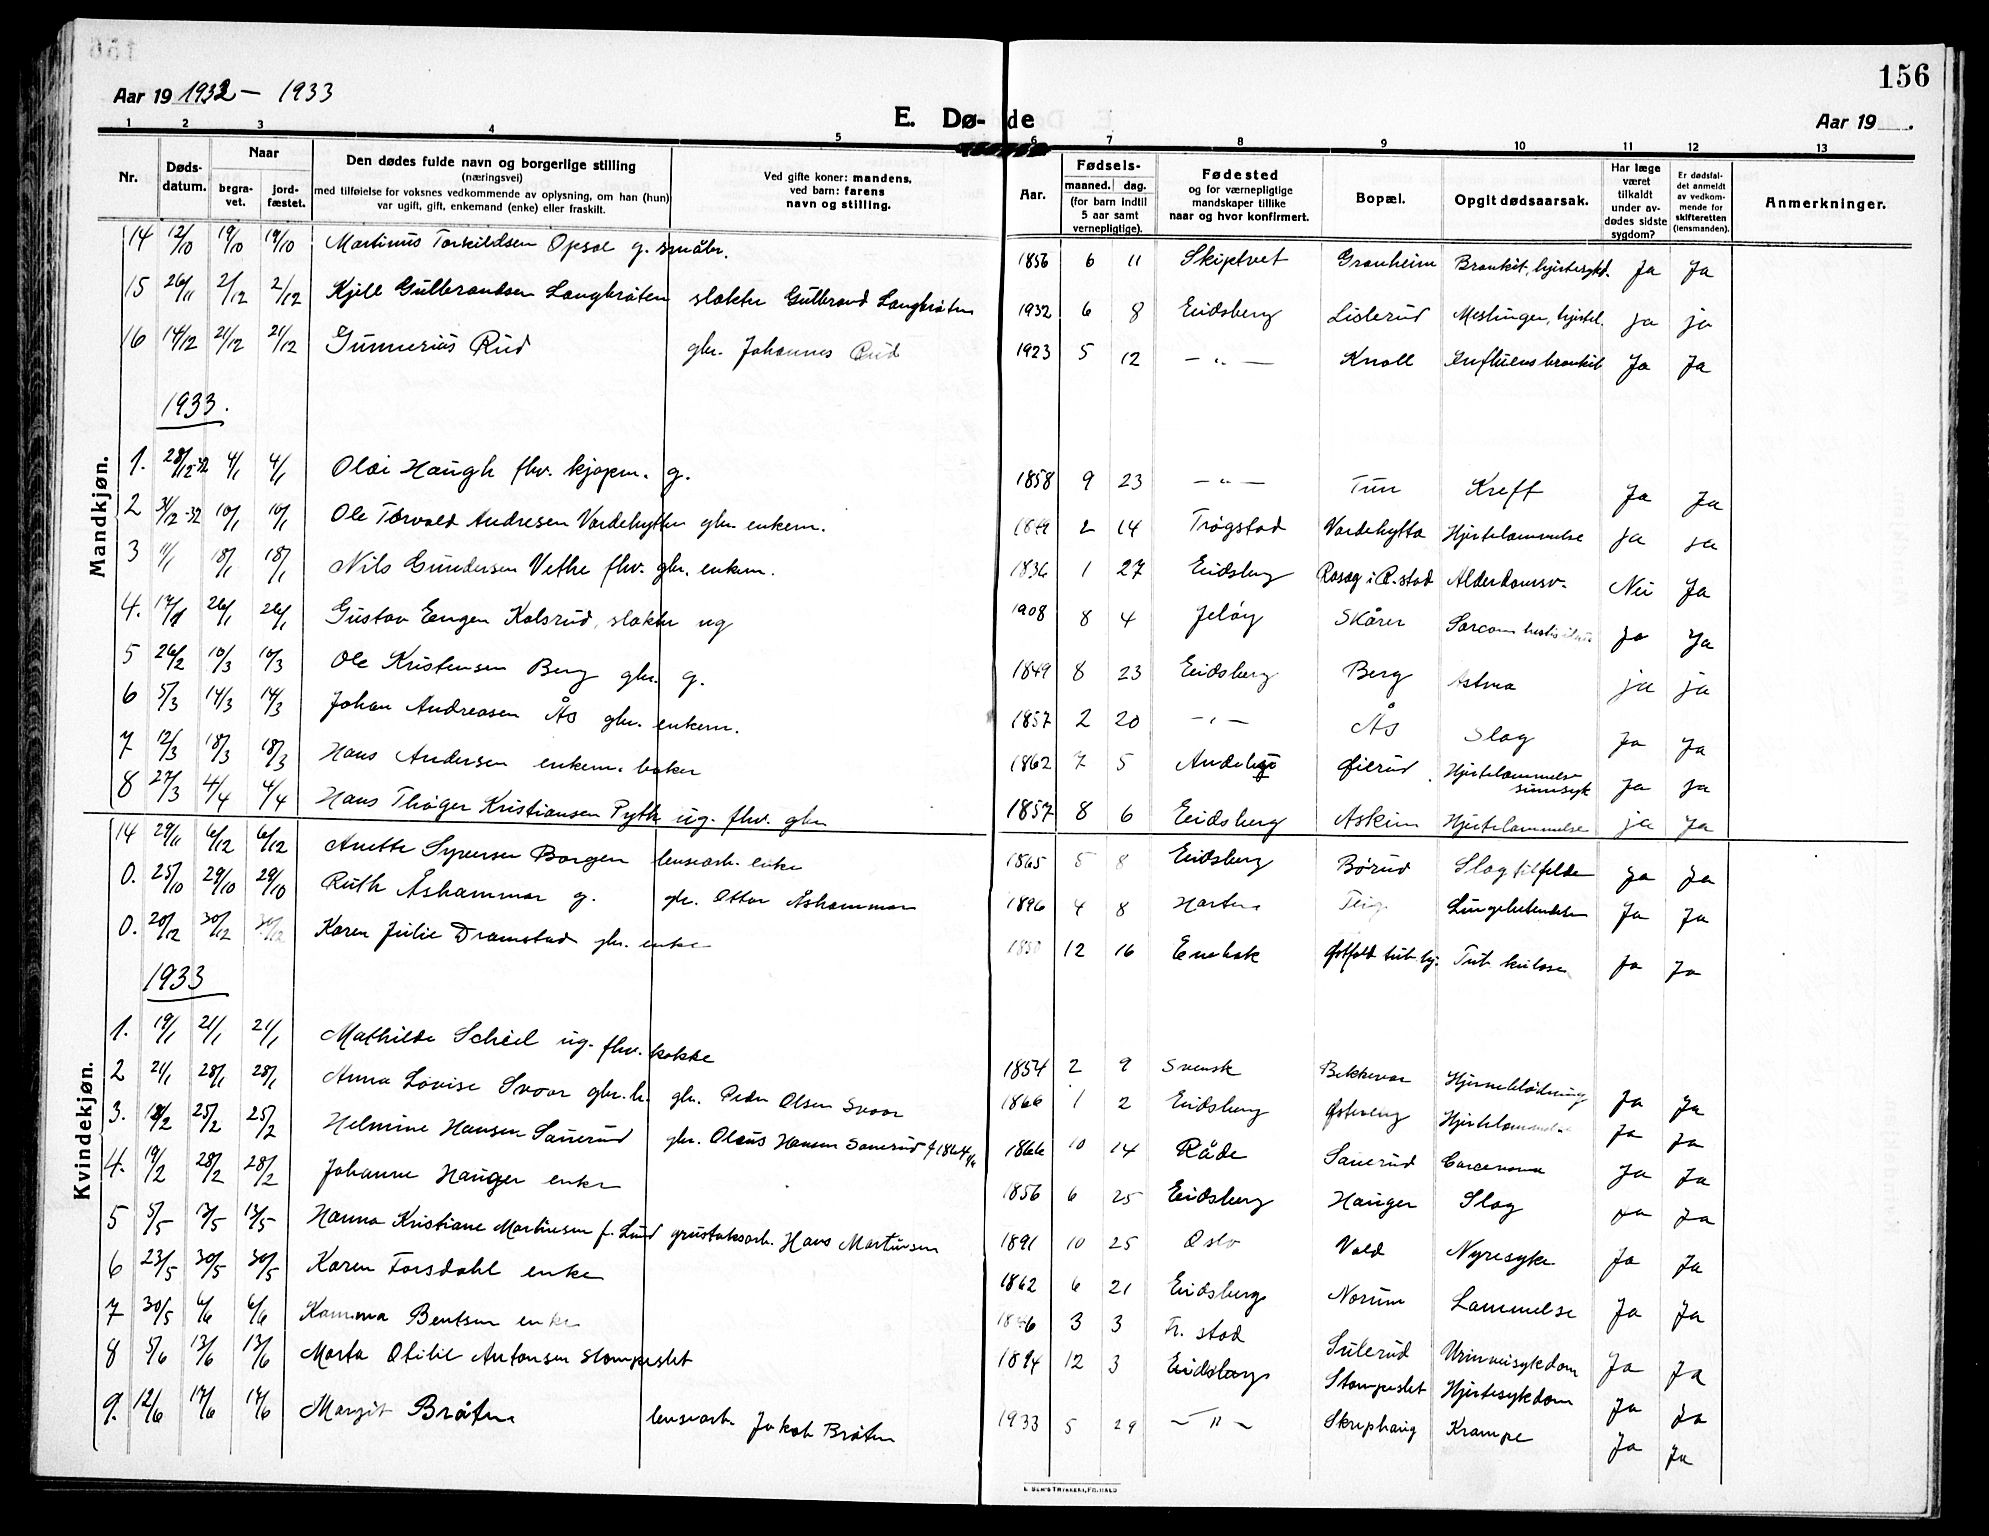 156
Aar 19 1932 – 1933
E. Dø-de
Aar 19 .
1 2 3 4 5 6 7 8 9 10 11 12 13
Nr. Døds-datum. Naar begra-vet. jord-fæstet. Den dødes fulde navn og borgerlige stilling (næringsvei) med tilføielse for voksnes vedkommende av oplysning, om han (hun) var ugift, gift, enkemand (enke) eller fraskilt. Ved gifte koner: mandens, ved barn: farens navn og stilling. Aar. Fødsels- maaned. dag. (for barn indtil 5 aar samt vernepligtige). Fødested og for værnepligtige mandskaper tillike naar og hvor konfirmert. Bopæl. Opgit dødsaarsak. Har læge været tilkaldt under av-dødes sidste sygdom? Er dødsfal-det anmeldt av vedkom-mende for skifteretten (lensmanden). Anmerkninger.
Mandkjøn.
14 12/10 19/10 19/10 Martinus Torkildsen Opsal g. småbr. 1856 6 11 Skiptvet Granheim Bronkit, hjertesykd. Ja Ja
15 26/11 2/12 2/12 Kjell Gulbrandsen Langbråten slakter Gulbrand Langbråten 1932 6 8 Eidsberg Lislerud Meslinger, hjertel. ja ja
16 14/12 21/12 21/12 Gunnerius Rud gbr. Johannes Rud 1923 5 12 — " — Knoll Influensbronkit Ja Ja
1933.
1. 28/12-32 4/1 4/1 Olai Haugh fhv. kjøpm. g. 1858 9 23 — " — Tun Kreft Ja Ja
2 31/12-32 10/1 10/1 Ole Torvald Andresen Vardehytten gbr enkem. 2 14 Trøgstad Vardehytta Hjertelammelse Ja Ja
3 11/1 18/1 18/1 Nils Gundersen Vethe fhv. gbr. enkem. 1836 1 27 Eidsberg i R.stad Alderdomssv. Nei Ja
4. 26/1 26/1 Gustav Eugen Kolsrud, slakter ug 1908 8 4 Jeløy Skårer Sarcom Ja Ja
5 26/2 10/3 10/3 Ole Kristensen Berg gbr. g. 1849 8 23 Eidsberg Berg Astma ja ja
6 5/3 14/3 14/3 Johan Andreasen Ås gbr. enkem. 1857 2 20 — " — Ås Slag Ja Ja
7 12/3 18/3 18/3 Hans Andersen enkem. baker 1862 7 5 Øierud Hjertelammelse sinnsyk Ja Ja
8 27/3 4/4 4/4 Hans Thøger Kristiansen Pytt ug. fhv. gbr 1857 8 6 Eidsberg Askim Hjertelammelse ja Ja
Kvindekjøn.
14 29/11 6/12 6/12 Anette Syversen Borgen løsearb. enke 1865 5 8 Eidsberg Børud Slagtilfelde Ja Ja
0. 25/10 29/10 29/10 Ruth Åshammar g. gbr. Ottar Åshammar 1896 4 8 Lungebetendelse Ja Ja
0. 20/12 30/12 30/12 Karen Julie Dramstad gbr. enke 12 16 Enebak Østfold tub.hj. Tuberkulose Ja Ja
1933
1. 19/1 21/1 21/1 Mathilde Scheel ug. fhv. kokke 1854 2 9 Svensk Bekkevar Hjerneblødning Ja Ja
2 21/1 28/1 28/1 Anna Lovise Svoor gbr.h. gbr. Peder Olsen Svoor 1866 1 2 Eidsberg Østereng Hjertelammelse Ja Ja
3. 18/2 25/2 25/2 Helmine Hansen Sauerud gbr. Olaus Hansen Sauerud f. 1864 1866 10 14 Råde Sauerud Carcenoma Ja Ja
4. 19/2 28/2 28/2 Johanne Hauger enke 1856 6 25 Eidsberg Hauger Slag Ja Ja
5 5/5 13/5 13/5 Hanna Kristiane Martinsen f. Lund grustaksarb. Hans Martinsen 1891 10 25 Oslo Vold Nyresyke Ja Ja
6 23/5 30/5 30/5 Karen Forsdahl enke 1862 6 21 Eidsberg Norum Lammelse Ja Ja
7 30/5 6/6 6/6 Kamma Bentsen enke 3 3 Fr. stad Sulerud Urinveisykdom Ja Ja
8 5/6 13/6 13/6 Marta Otilie Antonsen Stompeslet 1894 12 3 Eidsberg Stompeslet Hjertesykdom Ja Ja
9. 12/6 17/6 17/6 Margit Bråten løsearb. Jakob Bråten 1933 5 29 — " — Skriphaug Krampe Ja Ja